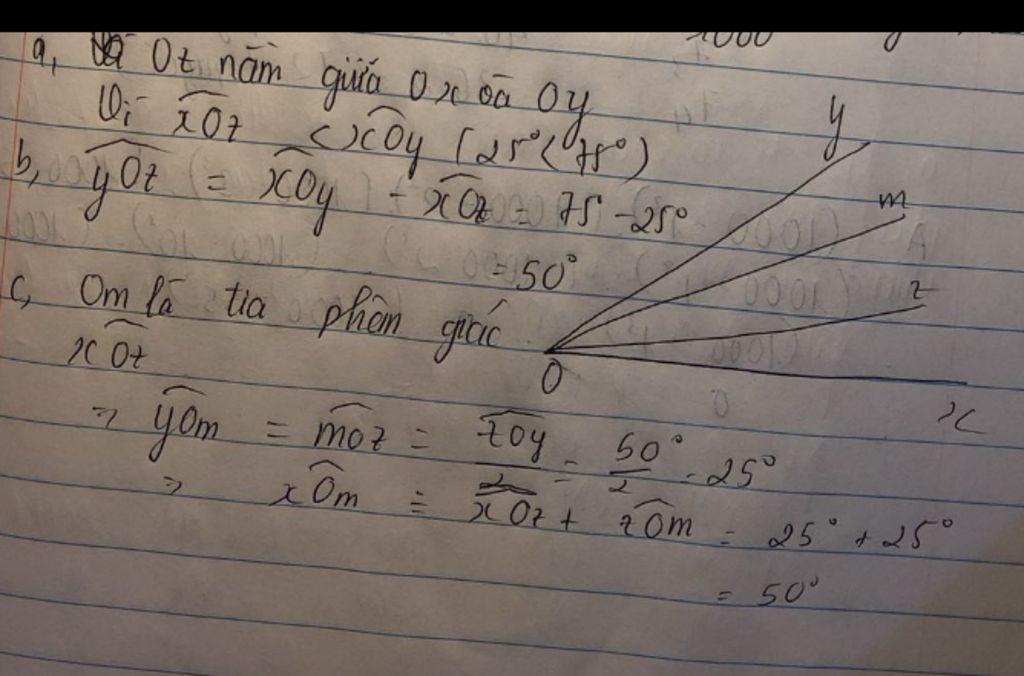 a, Oz nằm giữa Ox và Oy
Vì xOz < xOy (25° < 75°)
b, yOz = xOy - xOz = 75 - 25°
= 50°
c, Om là tia phân giác
xOz
=> yOm = mOz = zOy/2 = 50°/2 = 25°
=> xOm = xOz + zOm = 25° + 25°
= 50°
y
m
z
O
x